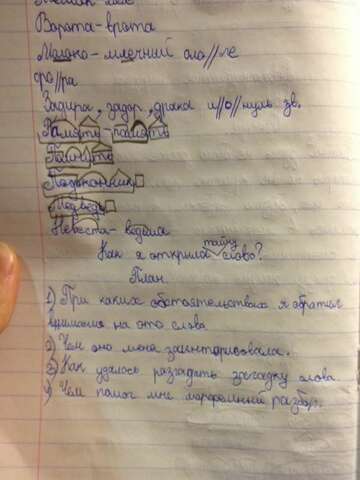 Ворота-врата
Молоко-млечный ога//ле
фо//ра
Задира, задор, драка и//о//нуль зв.
Память - память
Помнить
Подоконник
Медведь
Невеста - ведьма
Как я открыла тайну слова?
План
1) При каких обстоятельствах я обратил
внимания на это слова
2) Чем оно меня заинтарисовала.
3) Как удалось разгадать загадку слова
4) Чем помог мне морфемный разбор.